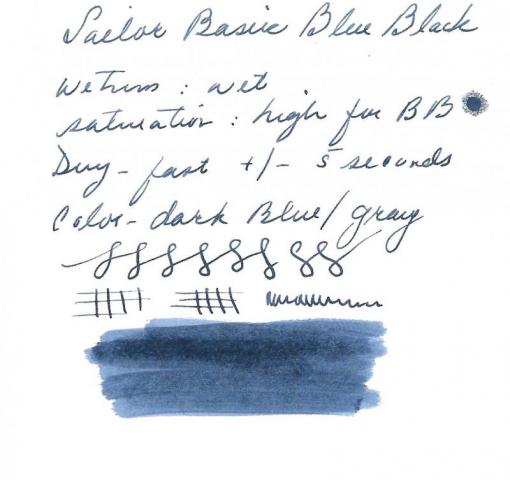 Sailor Basic Blue Black
Wetness : wet
saturation : high for BB
Dry - fast +/- 5 seconds
Color - dark Blue/gray